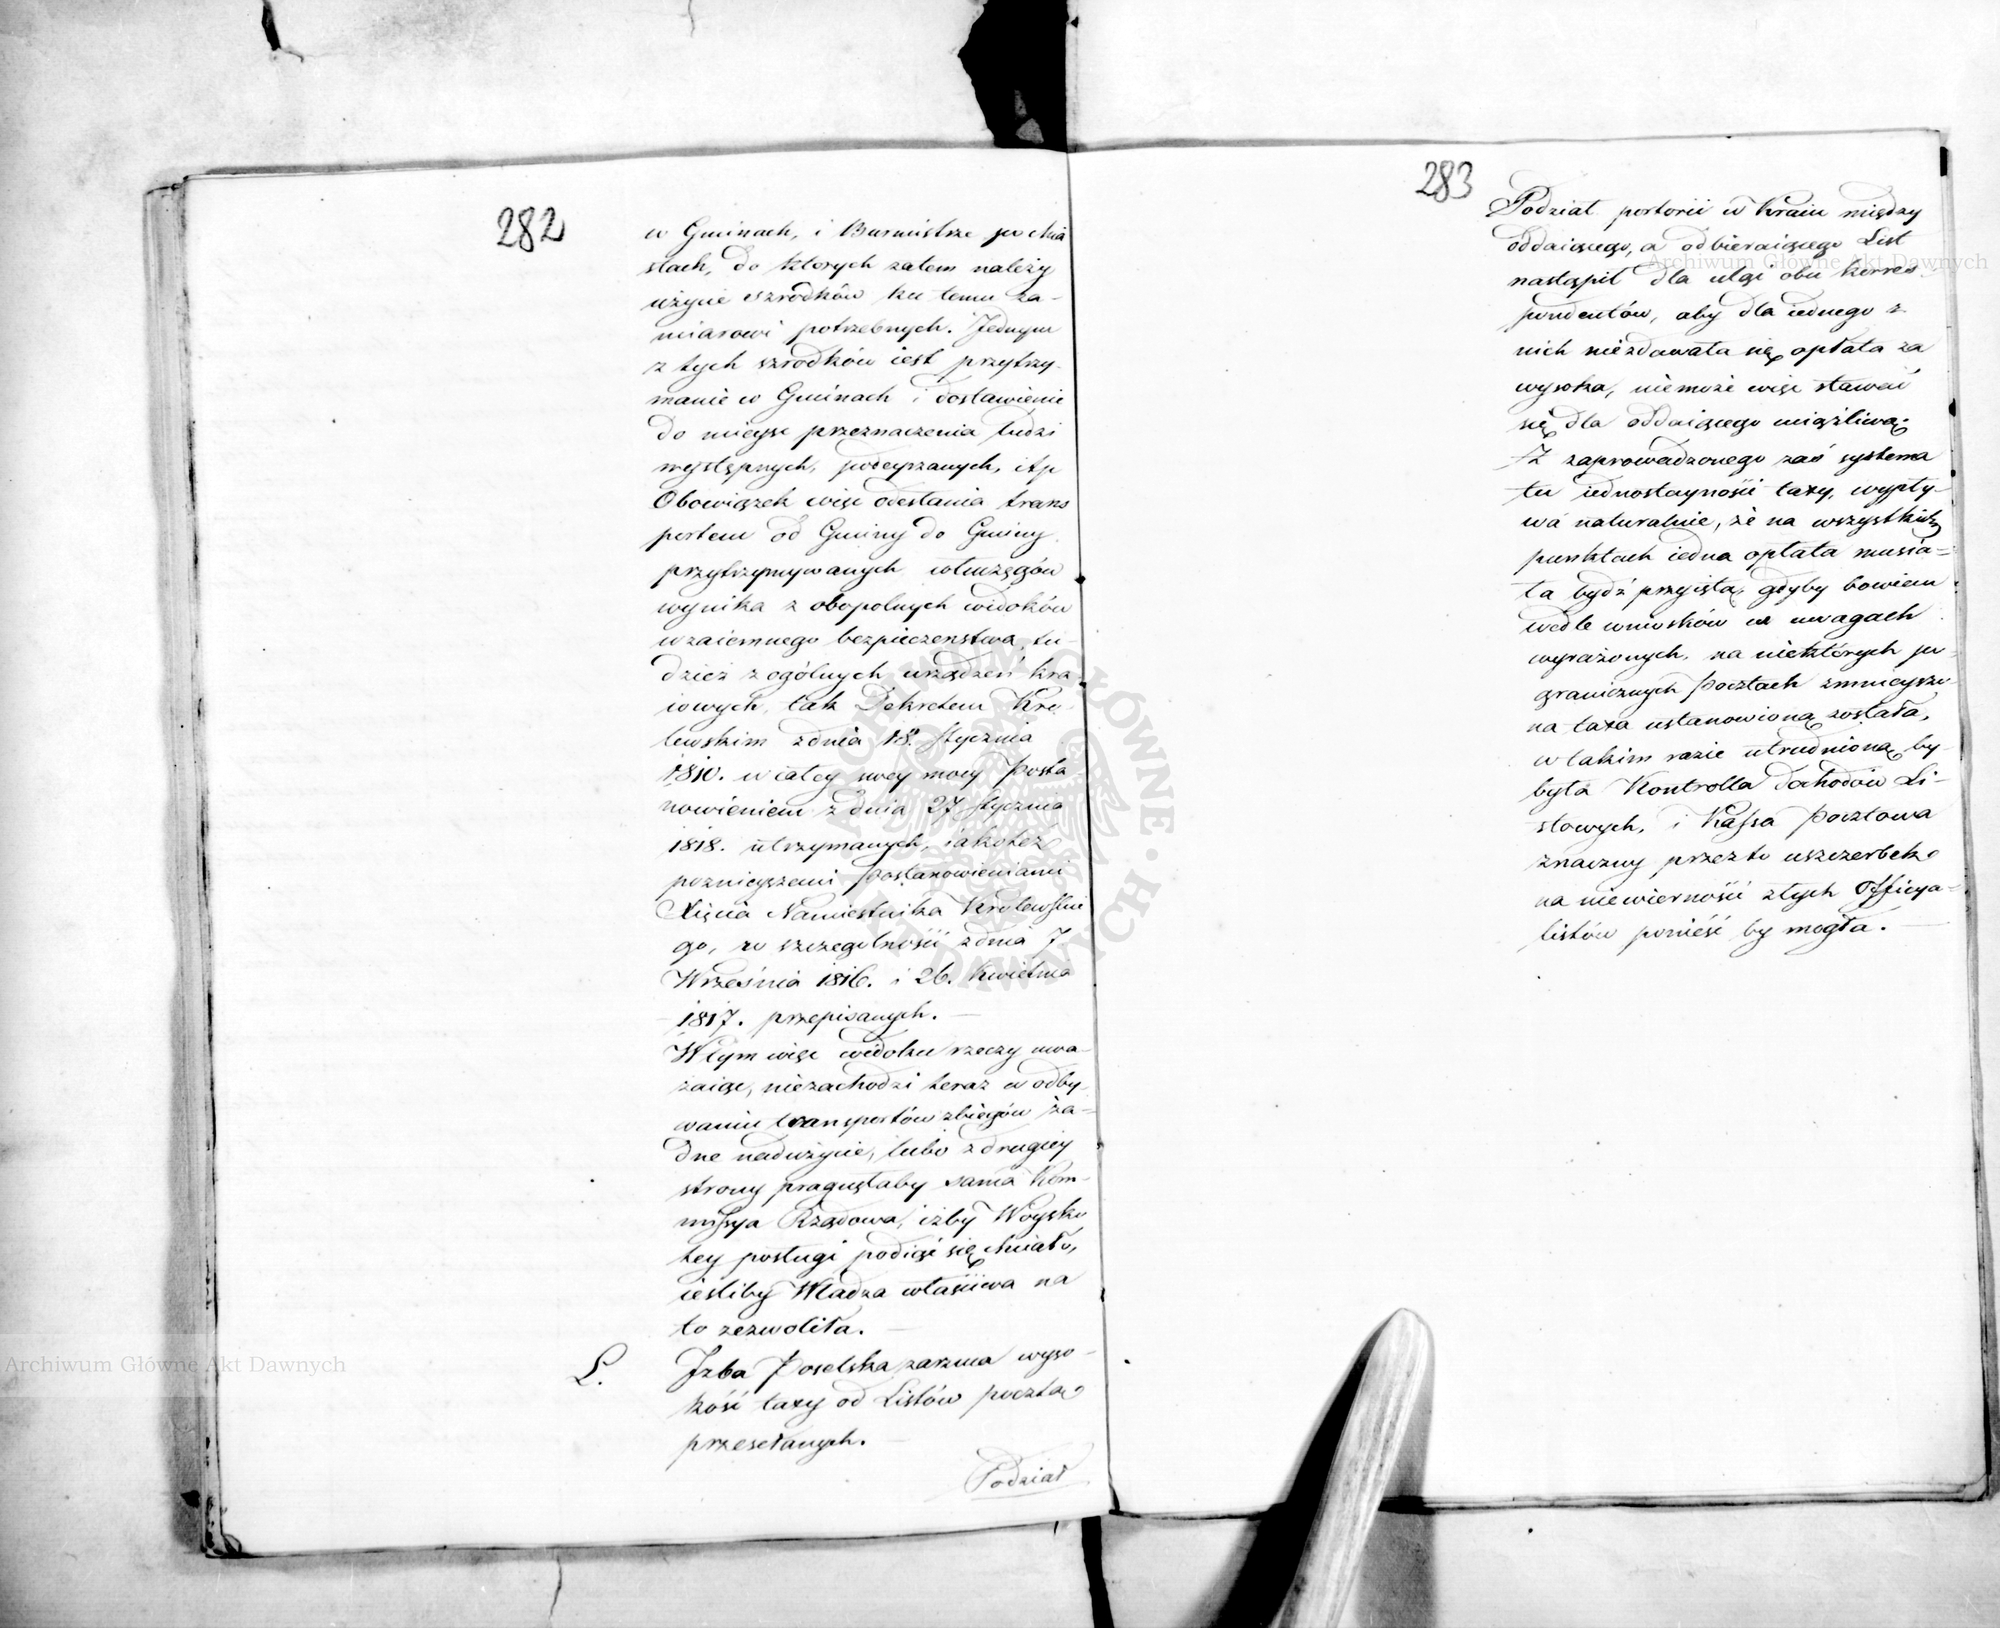 282
w Gminach, i Burmistrze po Mia
stach, do ktorych zatem należy
użycie szrodków ku temu za-
miarowi potrzebnych. Jednym
z tych szrodków iest przytrzy-
manie w Gminach i dostawienie
do mieysc przeznaczenia ludzi
występnych, podeyrzanych, itp
Obowiązek więc odesłania trans
portem od Gminy do Gminy
przytrzymywanych włóczęgów
wynika z obopolnych widoków
wzaiemnego bezpieczenstwa, tu-
dzież z ogólnych urządzeń kra-
iowych, tak Dekretem Kró-
lewskim z dnia 18. Stycznia
1810. w całey swey mocy Posta-
nowieniem z dnia 27 Stycznia
1818. utrzymanych, iakoteż
poznieyszemi Postanowieniami
Xięcia Namiestnika Królewskie
go, w szczegolności z dnia 7
Września 1816. i 26. Kwietnia
1817. przepisanych. —
W tym więc widoku rzeczy uwa-
żaiąc, niezachodzi teraz w odby-
waniu transportów zbiegów ża-
dne nadużycie, lubo z drugiey
strony pragnęłaby sama Kom-
missya Rządowa, iżby Woysko
tey posługi podiąć się chciało,
ieśliby Władza właściwa na
to zezwoliła. —
L. Izba Poselska zarzuca wyso-
kość taxy od Listów pocztą
przesełanych. —
Podział
283
Podział portorii w Kraiu między
oddaiącego, a odbieraiącego List
nastąpił dla ulgi obu korres-
pondentów, aby dla iednego z
nich niezdawała się opłata za
wysoka, niemoże więc stawać
się dla oddaiącego uciążliwą.
Z zaprowadzonego zaś systema
tu iednostayności taxy, wypły-
wa naturalnie, że na wszystkich
punktach iedna opłata musia-
ła bydź przyięta, gdyby bowiem
wedle wniosków w uwagach
wyrażonych, na niektórych po-
granicznych Pocztach zmnieyszo-
na taxa ustanowioną została,
w takim razie utrudnioną by-
była Kontrolla dochodów Li-
stowych, i Kassa Pocztowa
znaczny przezto uszczerbek
na niewierności złych Officya-
listów ponieść by mogła. —
Archiwum Główne Akt Dawnych
Archiwum Główne Akt Dawnych